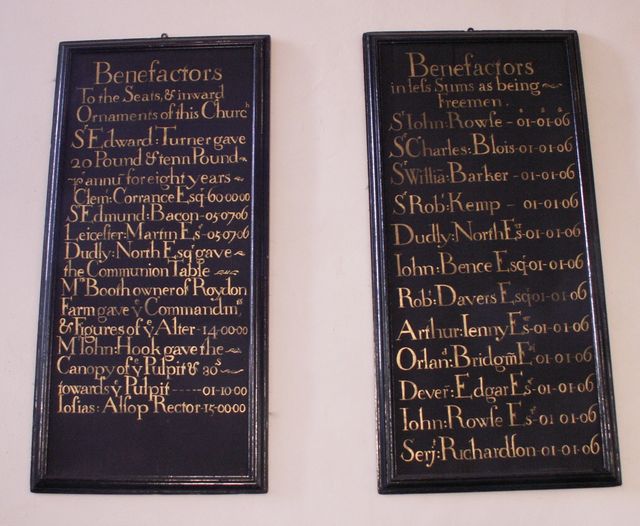 Benefactors
To the Seats, & inward
Ornaments of this Church
Sr Edward : Turner gave
20 Pound & tenn Pound
pr annu for eight years
Clem: Corrance Esqr 60 00 00
Sr Edmund: Bacon - 05 07 06
Leicester: Martin Esr - 05 07 06
Dudly: North Esqr gave
the Communion Table
Mrs Booth owner of Roydon
Farm gave ye Commandmts
& Figures of ye Alter - 14 00 00
Mr Iohn: Hook gave the
Canopy of ye Pulpit & 30s
towards ye Pulpit ---- 01-10-00
Iosias: Alsop Rector - 15-00-00
Benefactors
in less Sums as being
Freemen.
Sr Iohn: Rowse - 01-01-06
Sr Charles: Blois - 01-01-06
Sr Willia: Barker - 01-01-06
Sr Robt: Kemp - 01-01-06
Dudly: North Esr - 01-01-06
Iohn: Bence Esqr - 01-01-06
Robt: Davers Esqr - 01-01-06
Arthur: Ienny Esr - 01-01-06
Orland: Bridgm Er, 01-01-06
Dever: Edgar Esr - 01-01-06
Iohn: Rowse Esr - 01 01-06
Serj: Richardson - 01-01-06